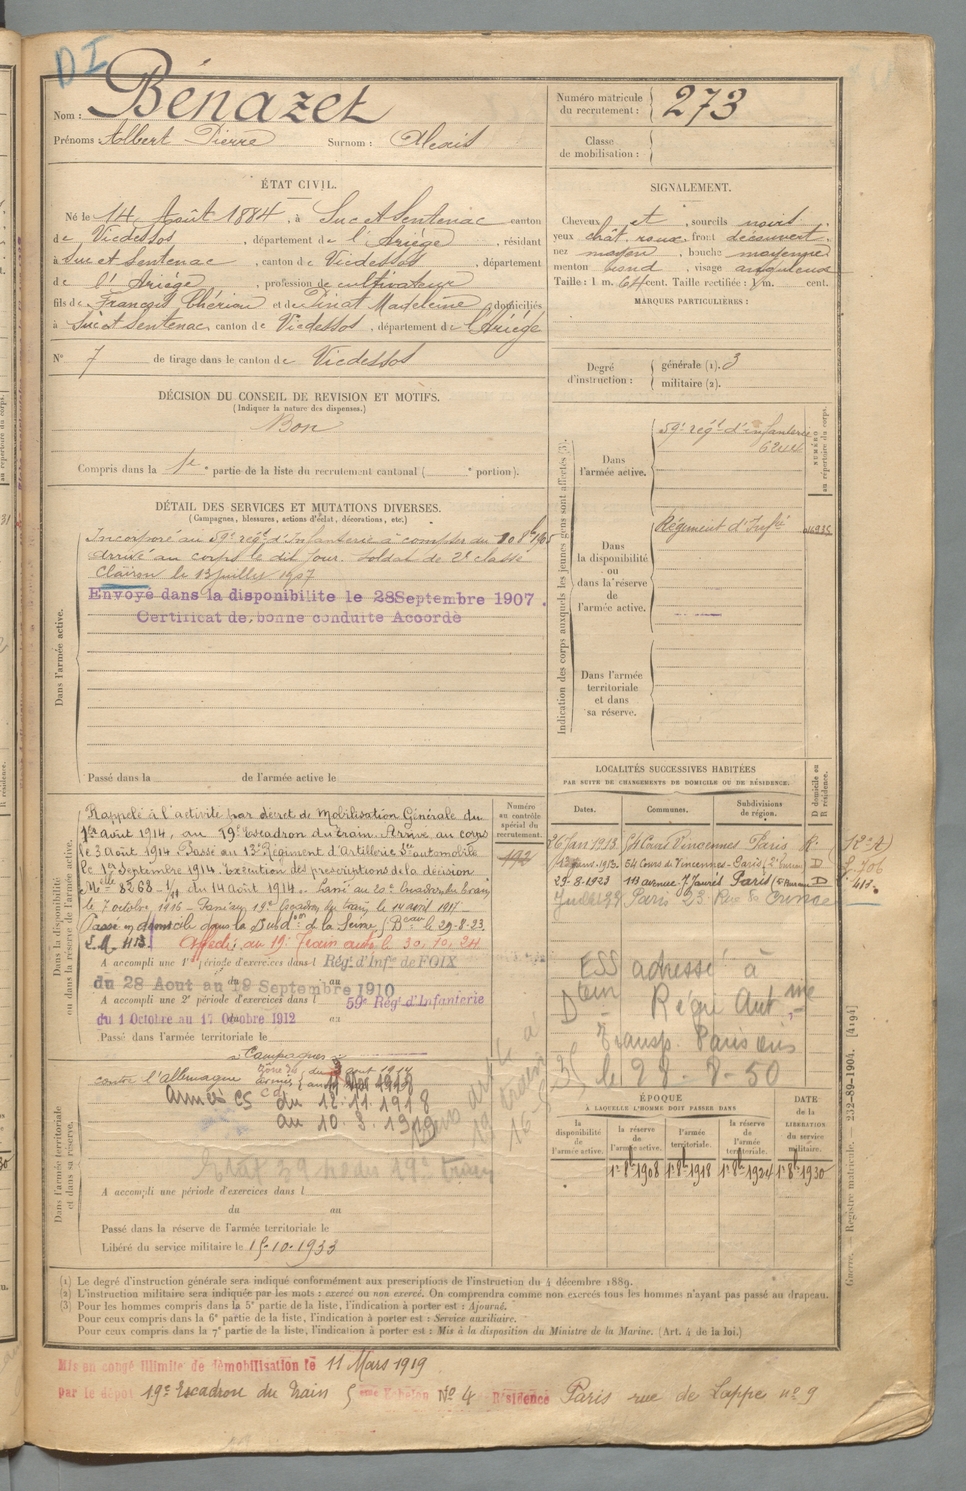 DI
Nom : Bénazet
Prénoms : Albert Pierre Surnom : Alexis
Numéro matricule du recrutement : 273
Classe de mobilisation :
ÉTAT CIVIL.
Né le 14 Août 1884, à Suc et Sentenac canton
de Vicdessos, département de l'Ariège, résidant
à Suc et Sentenac, canton de Vicdessos, département
de l'Ariège, profession de cultivateur
fils de François Chérian et de Pinat Madeleine, domiciliés
à Suc et Sentenac, canton de Vicdessos, département de l'Ariège
N° 7 de tirage dans le canton de Vicdessos
SIGNALEMENT.
Cheveux et, sourcils noirs
yeux chât. roux, front découvert,
nez moyen, bouche moyenne
menton rond, visage anguleux
Taille : 1 m. 64 cent. Taille rectifiée : 1 m. cent.
MARQUES PARTICULIÈRES :
Degré d'instruction : générale (1). 3
militaire (2).
DÉCISION DU CONSEIL DE REVISION ET MOTIFS.
(Indiquer la nature des dispenses.)
Bon
Compris dans la 1re partie de la liste du recrutement cantonal ( e portion).
DÉTAIL DES SERVICES ET MUTATIONS DIVERSES.
(Campagnes, blessures, actions d'éclat, décorations, etc.)
Dans l'armée active.
Incorporé au 59e régt d'Infanterie à compter du
arrivé au corps le dit jour. Soldat de 2e classe
Clairon le 13 juillet 1907
Envoyé dans la disponibilite le 28 Septembre 1907.
Certificat de bonne conduite Accordé
Passé dans la de l'armée active le
Indication des corps auxquels les jeunes gens sont affectés (3).
NUMÉRO au répertoire du corps.
Dans l'armée active.
59e régt d'infanterie
Dans la disponibilité ou dans la réserve de l'armée active.
Régiment d'Infie
Dans l'armée territoriale et dans sa réserve.
Dans la disponibilité ou dans la réserve de l'armée active.
Rappelé à l'activité par décret de Mobilisation Générale du
1er août 1914, au 19e Escadron du train. Arrivé au corps
le 3 août 1914. Passé au 13e Régiment d'Artillerie automobile
le 1er Septembre 1914. Exécution des prescriptions de la décision
Mlle 8268-1/11 du 14 août 1914. Passé au 20e Escadron du train
le 7 octobre 1916 - Passé au 19e Escadron du train le 14 avril 1917
Passé en domicile dans la Subdon de la Seine le 29.8.23.
Affecté au 19e Train auto le 30.10.24
Numéro au contrôle spécial du recrutement.
192
A accompli une 1re période d'exercices dans l Régt d'Infie de FOIX
du 28 Aout au 19 Septembre 1910
A accompli une 2e période d'exercices dans l 59e Régt d'Infanterie
du 1 Octobre au 17 Octobre 1912
Passé dans l'armée territoriale le
Dans l'armée territoriale et dans sa réserve.
Campagnes
contre l'allemagne
Armées CS du 12.11.1918
au 10.3.1919
A accompli une période d'exercices dans l
du au
Passé dans la réserve de l'armée territoriale le
Libéré du service militaire le 15.10.1933
LOCALITÉS SUCCESSIVES HABITÉES
PAR SUITE DE CHANGEMENTS DE DOMICILE OU DE RÉSIDENCE.
Dates. Communes. Subdivisions de région. D domicile ou R résidence.
26 Jan 1913. 54 Cours Vincennes Paris R.
1913. 54 Cours de Vincennes - Paris D
29-8-1923 113 avenue J. Jaurès Paris D
Paris 23 Rue
ESS adressé à
Dteur Régie Autme
Transp. Parisiens
le 28-8-50
ÉPOQUE
À LAQUELLE L'HOMME DOIT PASSER DANS
DATE de la LIBÉRATION du service militaire.
la disponibilité de l'armée active. la réserve de l'armée active. l'armée territoriale. la réserve de l'armée territoriale.
1er 8bre 1908 1er 8bre 1918 1er 8bre 1924 1er 8bre 1930
Guerre. — Registre matricule. — 232-89-1904. [4194]
(1) Le degré d'instruction générale sera indiqué conformément aux prescriptions de l'instruction du 4 décembre 1889.
(2) L'instruction militaire sera indiquée par les mots : exercé ou non exercé. On comprendra comme non exercés tous les hommes n'ayant pas passé au drapeau.
(3) Pour les hommes compris dans la 5e partie de la liste, l'indication à porter est : Ajourné.
Pour ceux compris dans la 6e partie de la liste, l'indication à porter est : Service auxiliaire.
Pour ceux compris dans la 7e partie de la liste, l'indication à porter est : Mis à la disposition du Ministre de la Marine. (Art. 4 de la loi.)
Mis en congé illimité de démobilisation le 11 Mars 1919
par le dépôt 19e Escadron du Train 5eme Echelon N° 4 Résidence Paris rue de Lappe n° 9